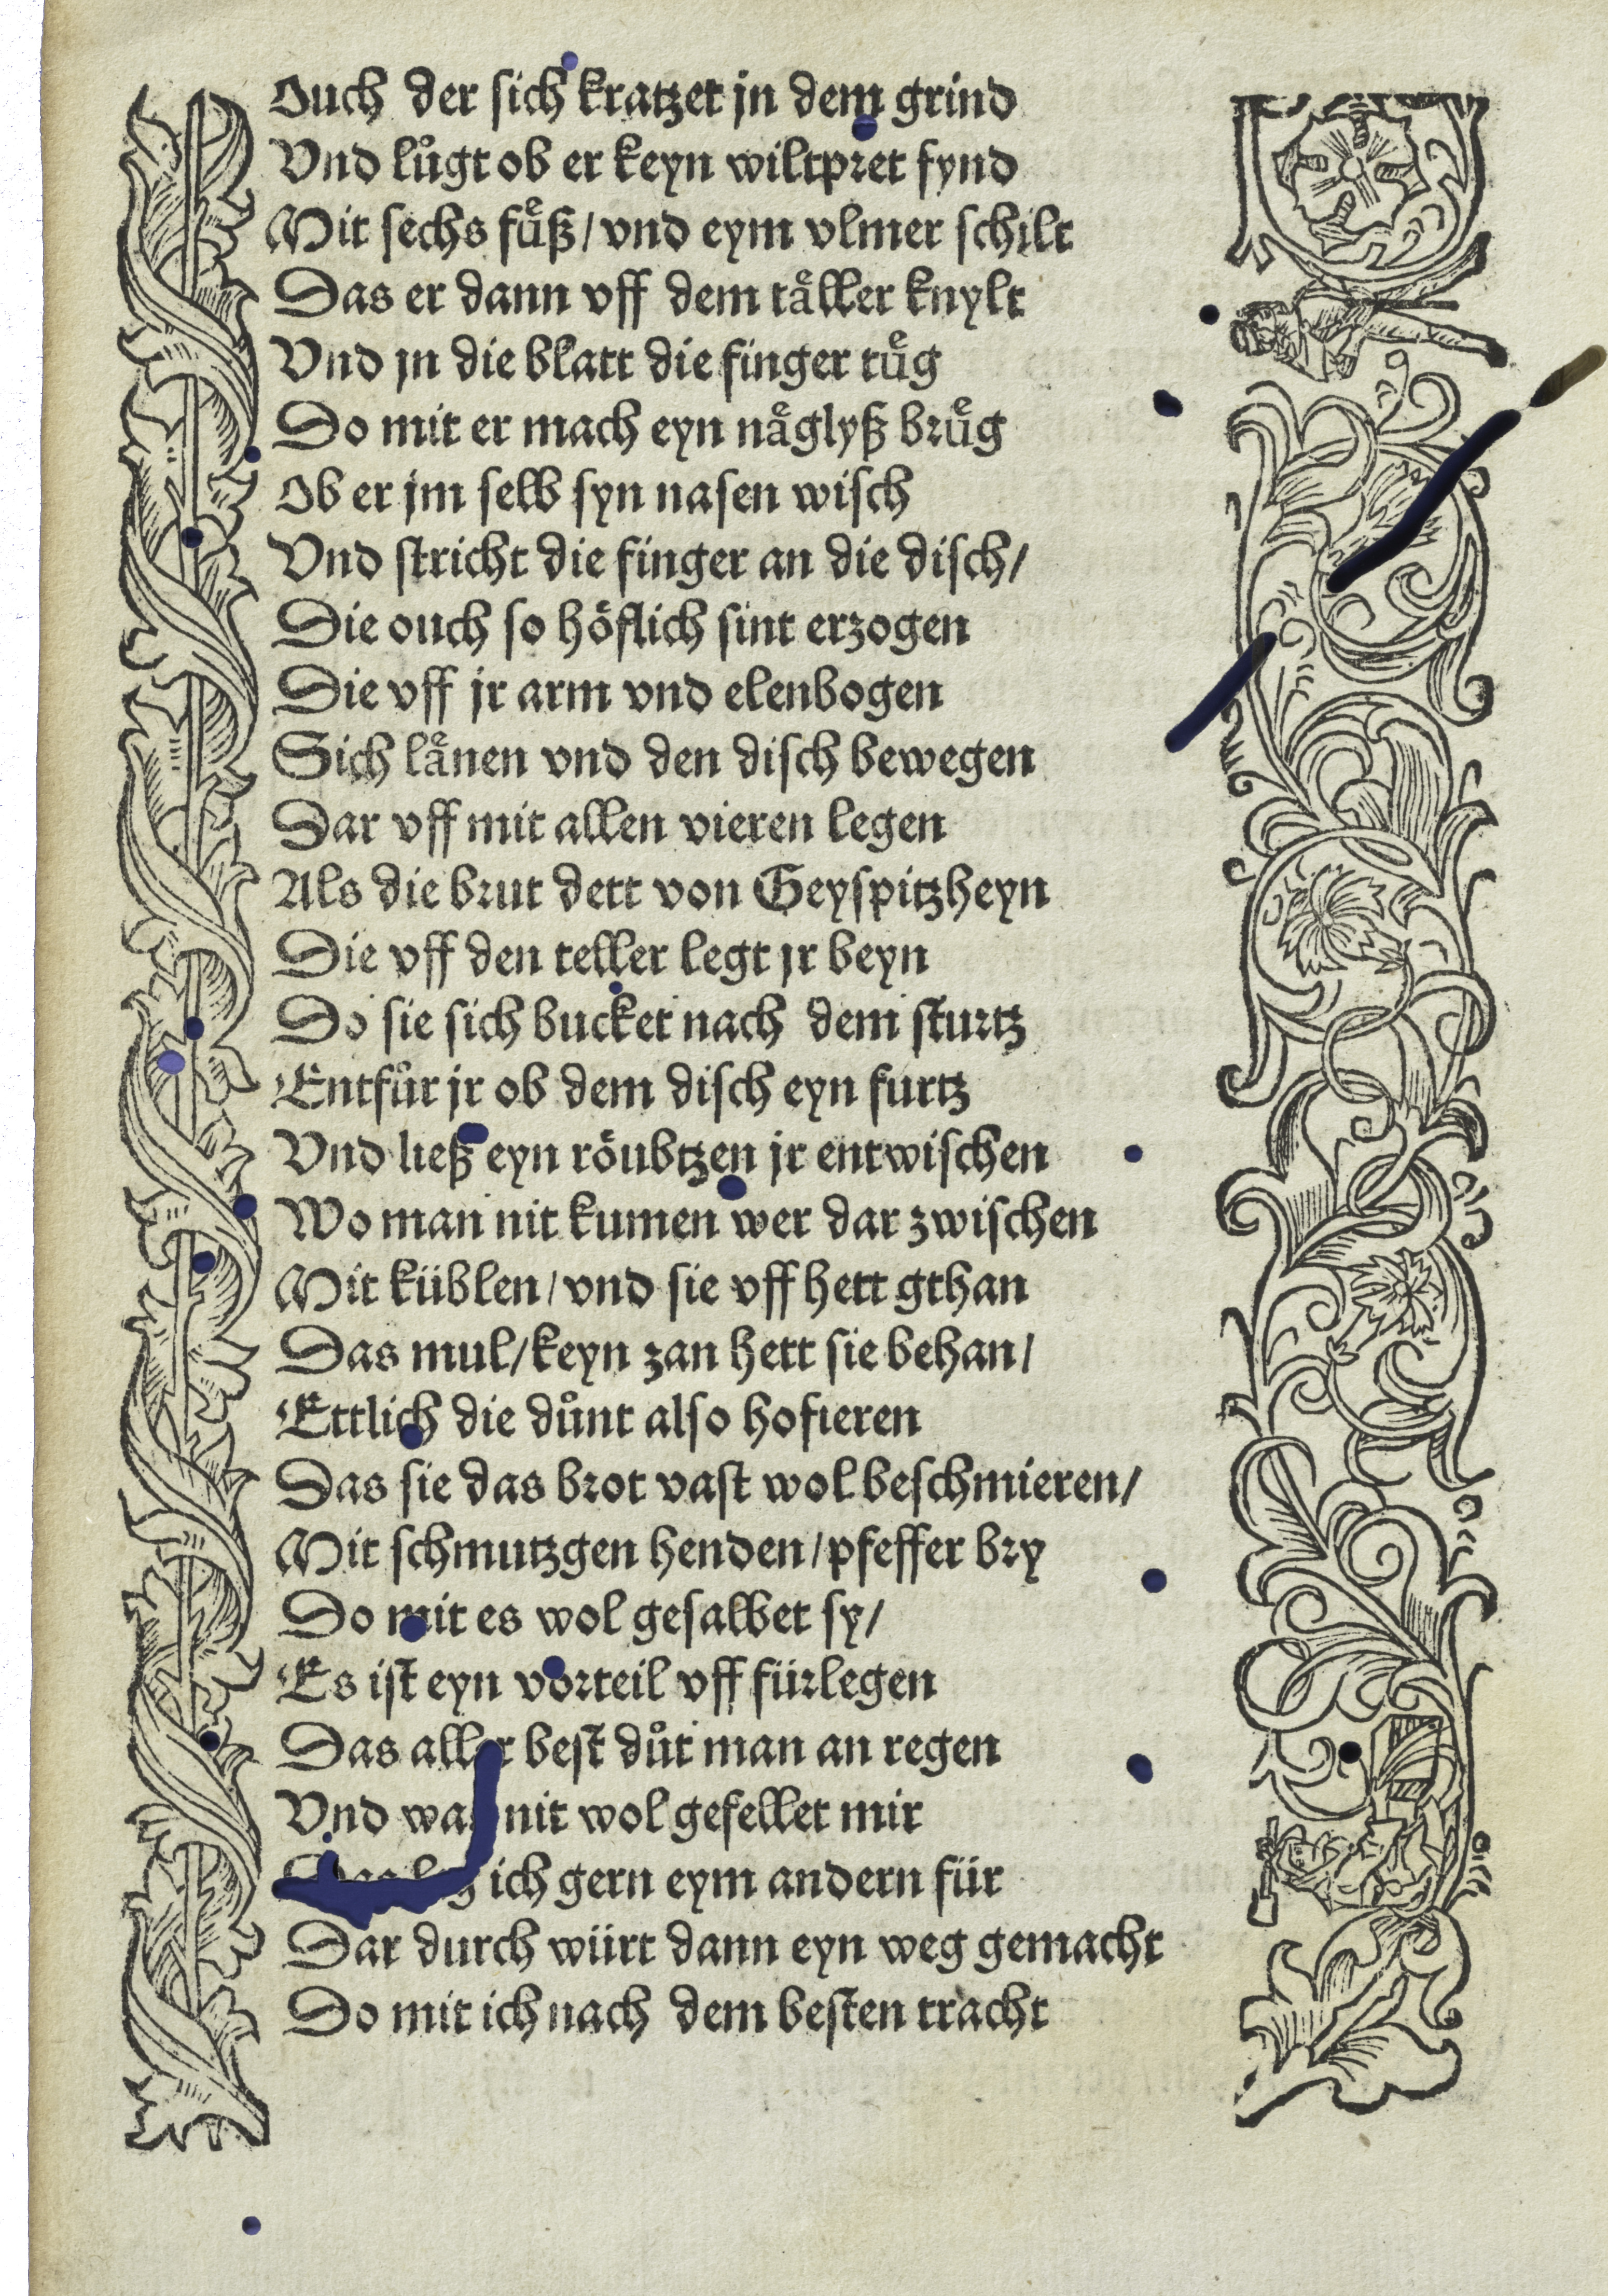 Ouch der sich kratzet jn dem grind
Vnd lůgt ob er keyn wiltpret fynd
Mit sechs fuͤß / vnd eym vlmer schilt
Das er dann vff dem taͤller knylt
Vnd jn die blatt die finger tuͤg
Do mit er mach eyn naͤglyß bruͤg
Ob er jm selb syn nasen wisch
Vnd stricht die finger an die disch /
Die ouch so hoͤflich sint erzogen
Die vff jr arm vnd elenbogen
Sich laͤnen vnd den disch bewegen
Dar vff mit allen vieren legen
Als die brut dett von Geyspitzheyn
Die vff den teller legt jr beyn
Do sie sich bucket nach dem sturtz
Entfůr jr ob dem disch eyn furtz
Vnd ließ eyn roͤubtzen jr entwischen
Wo man nit kumen wer dar zwischen
Mit küblen / vnd sie vff hett gthan
Das mul / keyn zan hett sie behan /
Ettlich die důnt also hofieren
Das sie das brot vast wol beschmieren /
Mit schmutzgen henden / pfeffer bry
Do mit es wol gesalbet sy /
Es ist eyn vorteil vff fürlegen
Das aller best důt man an regen
Vnd was nit wol gefellet mir
ich gern eym andern für
Dar durch würt dann eyn weg gemacht
Do mit ich nach dem besten tracht